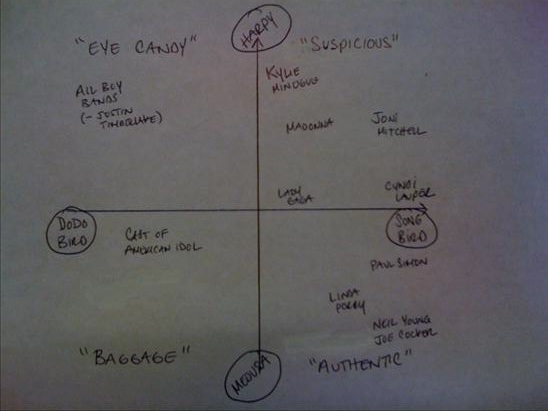 HARPY
"EYE CANDY"
"SUSPICIOUS"
KYLIE
MINOGUE
ALL BOY
BANDS
(- JUSTIN
TIMBERLAKE)
MADONNA
JONI
MITCHELL
LADY
GAGA
CYNDI
LAUPER
DODO
BIRD
SONG
BIRD
CAST OF
AMERICAN IDOL
PAUL SIMON
LINDA
PERRY
NEIL YOUNG
JOE COCKER
"BAGGAGE"
MEDUSA
"AUTHENTIC"